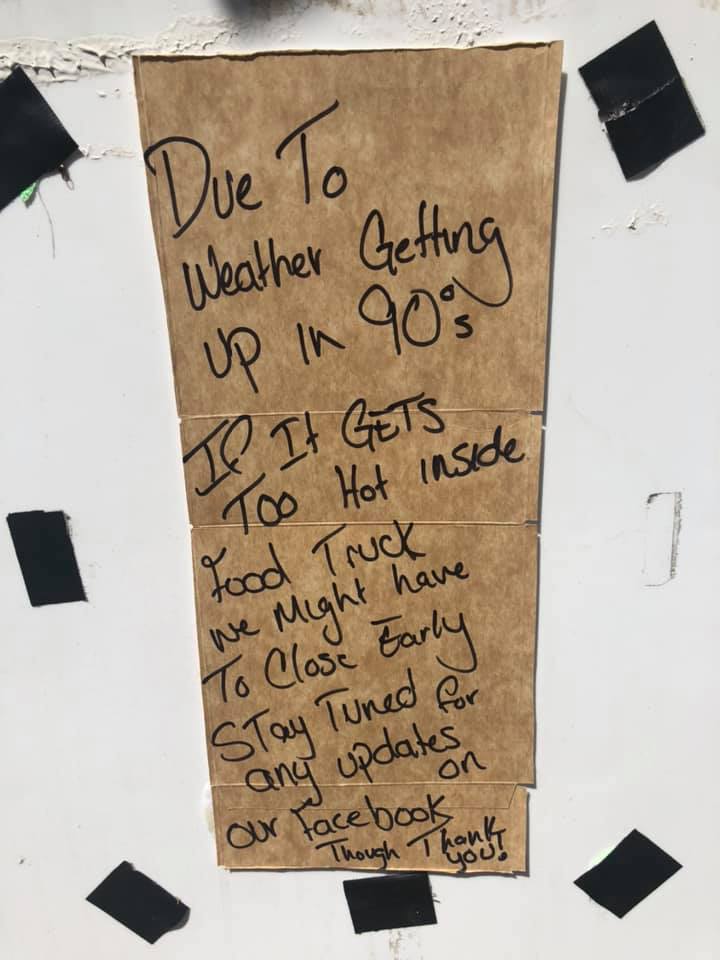 Due To
Weather Getting
UP In 90°s
If It GETS
Too Hot inside
Food Truck
we Might have
To Close Early
STay Tuned for
any updates
on
our Facebook
Though Thank
you!